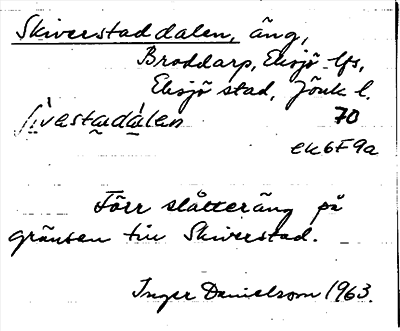 Skiverstaddalen, äng,
Broddarp, Eksjö lfs,
Eksjö stad, Jönk l.
70
ek6F9a
Förr slåtteräng på
gränsen till Skiverstad.
Inger Danielsson 1963.